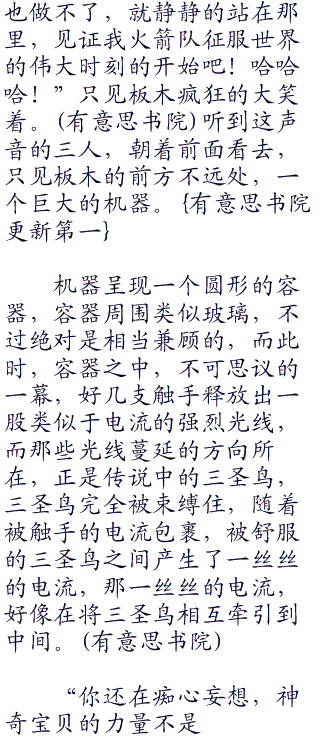 也做不了，就静静的站在那
里，见证我火箭队征服世界
的伟大时刻的开始吧！哈哈
哈！”只见板木疯狂的大笑
着。(有意思书院)听到这声
音的三人，朝着前面看去，
只见板木的前方不远处，一
个巨大的机器。{有意思书院
更新第一}
机器呈现一个圆形的容
器，容器周围类似玻璃，不
过绝对是相当兼顾的，而此
时，容器之中，不可思议的
一幕，好几支触手释放出一
股类似于电流的强烈光线，
而那些光线蔓延的方向所
在，正是传说中的三圣鸟，
三圣鸟完全被束缚住，随着
被触手的电流包裹，被舒服
的三圣鸟之间产生了一丝丝
的电流，那一丝丝的电流，
好像在将三圣鸟相互牵引到
中间。(有意思书院)
“你还在痴心妄想，神
奇宝贝的力量不是